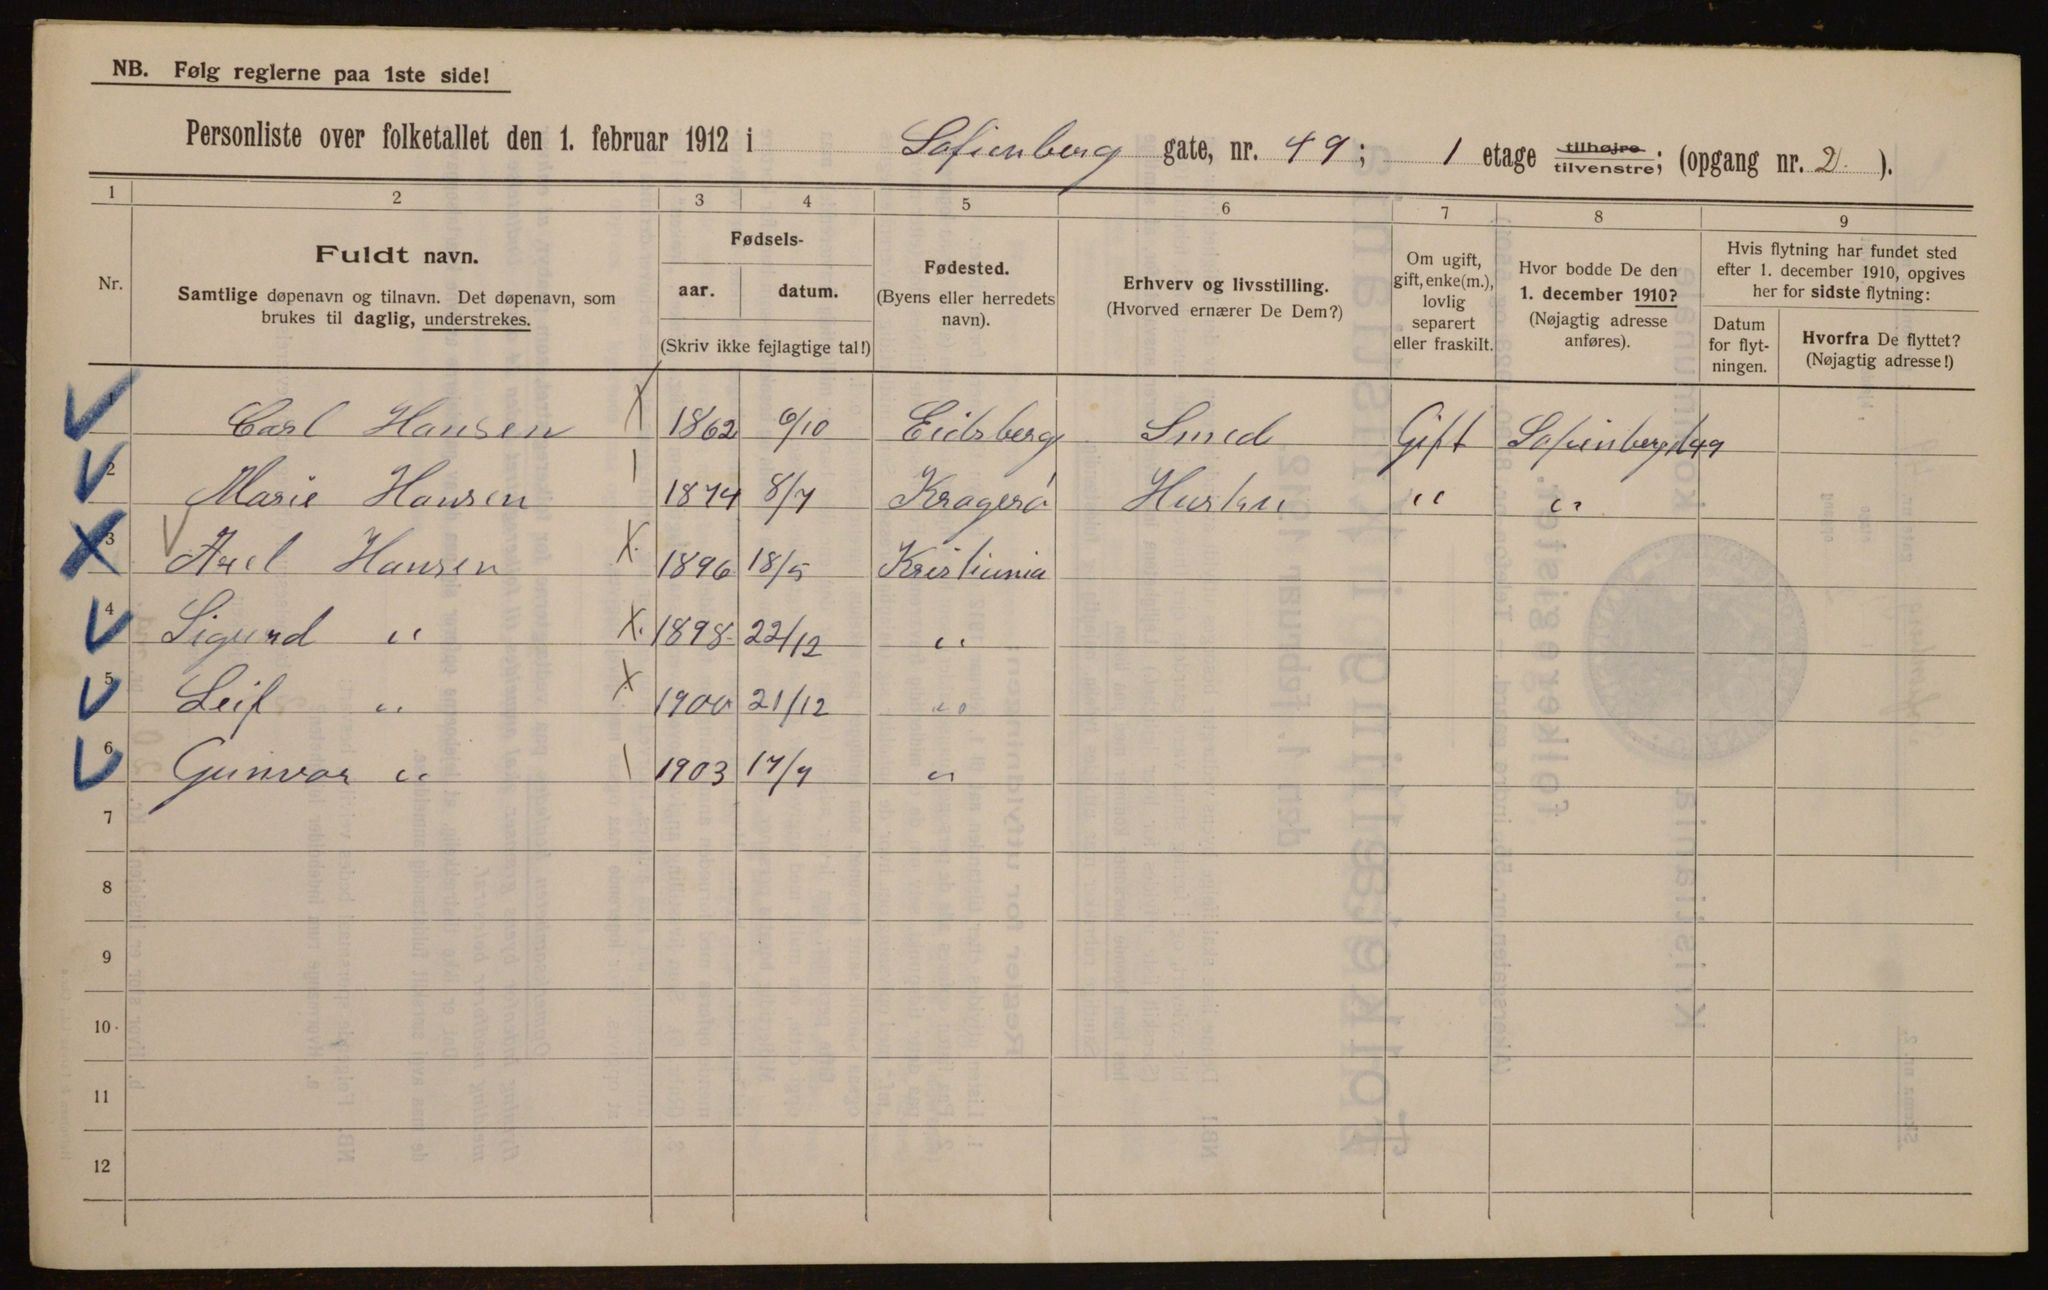 NB. Følg reglerne paa 1ste side!
Personliste over folketallet den 1. februar 1912 i Sofienberg gate, nr. 49; 1 etage tilhøjre tilvenstre; (opgang nr. 2).
1 2 3 4 5 6 7 8 9
Nr.
Fuldt navn.
Samtlige døpenavn og tilnavn. Det døpenavn, som
brukes til daglig, understrekes.
Fødsels-
aar. datum.
(Skriv ikke fejlagtige tal!)
Fødested.
(Byens eller herredets
navn).
Erhverv og livsstilling.
(Hvorved ernærer De Dem?)
Om ugift,
gift, enke(m.),
lovlig
separert
eller fraskilt.
Hvor bodde De den
1. december 1910?
(Nøjagtig adresse
anføres).
Hvis flytning har fundet sted
efter 1. december 1910, opgives
her for sidste flytning:
Datum
for flyt-
ningen.
Hvorfra De flyttet?
(Nøjagtig adresse!)
1 Carl Hansen X 1862 6/10 Eidsberg Smed Gift Sofienbergg 49
2 Marie Hansen 1 1874 8/7 Kragerø Hustru " "
3 Axel Hansen X. 1896 18/5 Kristiania
4 Sigurd " X. 1898 22/12 "
5 Leif " X 1900 21/12 "
6 Gunvor " 1 1903 17/7 "
7
8
9
10
11
12